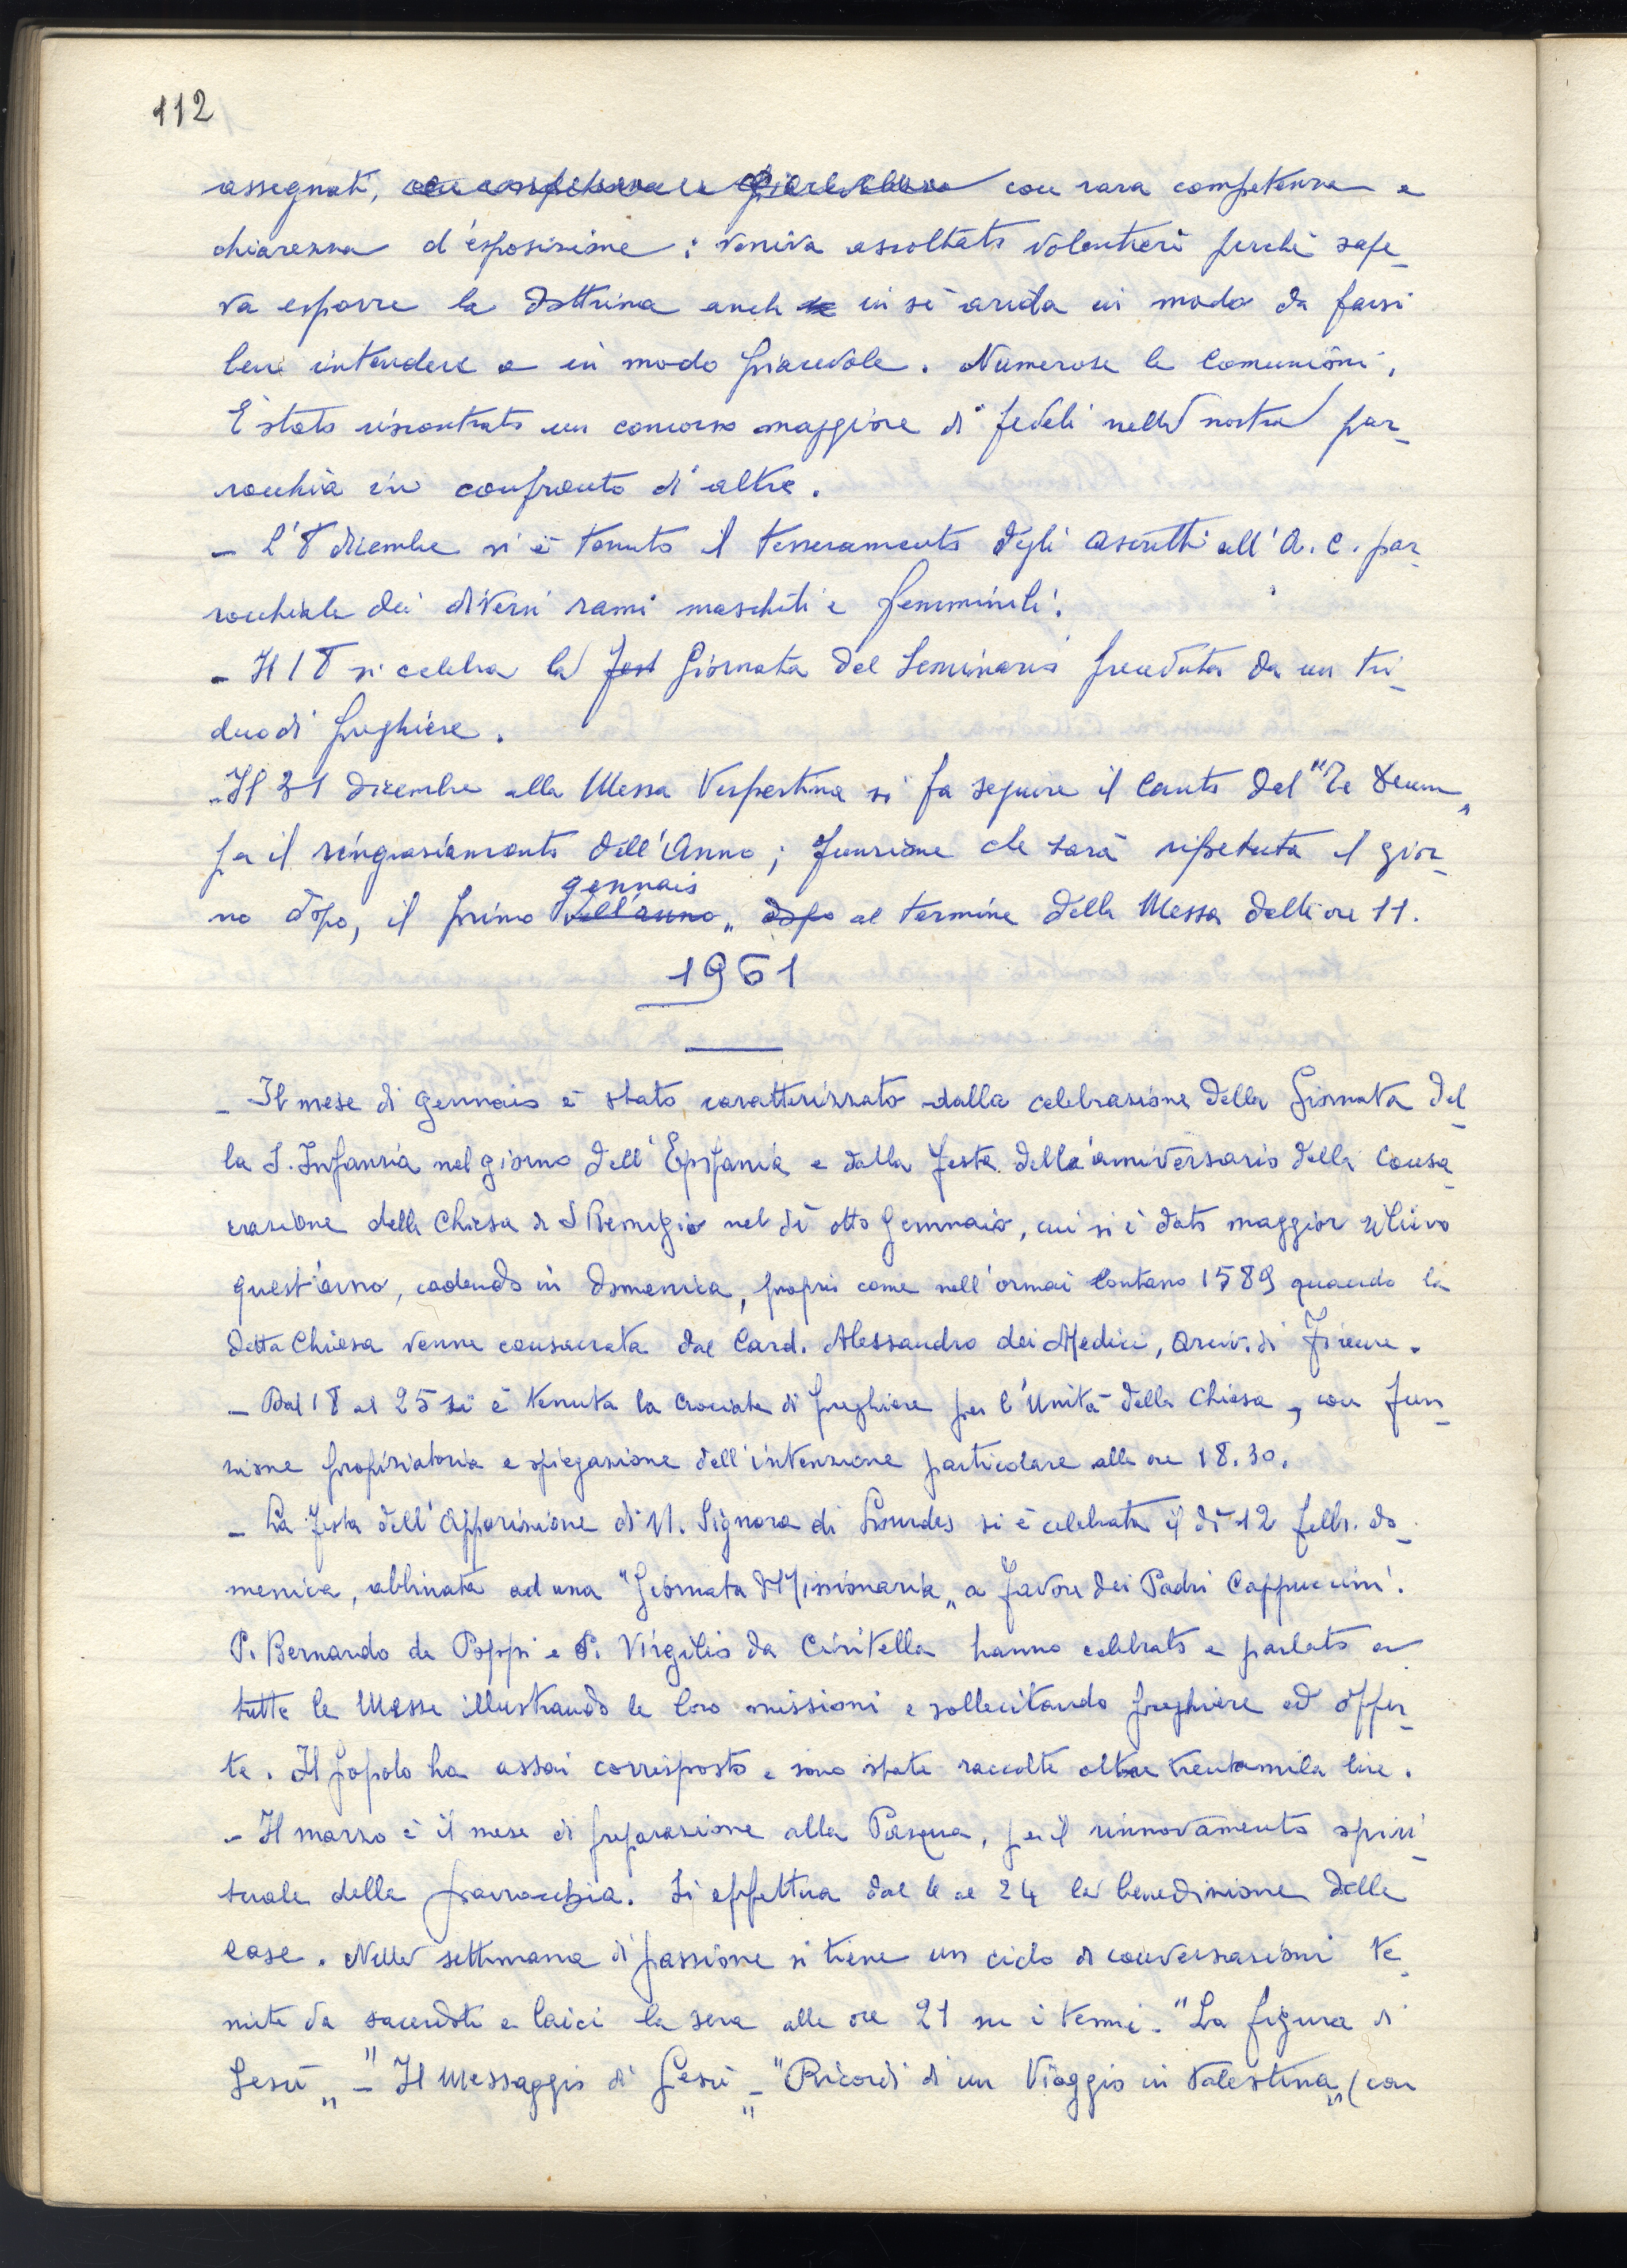 112
assegnati, con rara competenza e
chiarezza d'esposizione: veniva ascoltato volentieri perché sape_
va esporre la dottrina anche in sé arida in modo da farsi
bene intendere e in modo piacevole. Numerose le Comunioni.
È stato riscontrato un concorso maggiore di fedeli nella nostra par_
rocchia in confronto di altre.
_ L'8 dicembre si è tenuto il tesseramento degli ascritti all'A.C. par_
rocchiale dei diversi rami maschili e femminili.
_ Il 18 si celebra la Fest Giornata del Seminario preceduta da un tri_
duo di preghiere.
_ Il 31 dicembre alla Messa Vespertina si fa seguire il Canto del "Te Deum„
per il ringraziamento dell'Anno; funzione che sarà ripetuta il gior_
no dopo, il primo dell'anno gennaio„ dopo al termine della Messa delle ore 11.
1961
_ Il mese di Gennaio è stato caratterizzato dalla celebrazione della Giornata del_
la S. Infanzia nel giorno dell'Epifania e dalla festa dell'anniversario della Consa_
crazione della Chiesa di S Remigio nel dì otto Gennaio, cui si è dato maggior rilievo
quest'anno, cadendo in domenica, proprio come nell'ormai lontano 1589 quando la
detta Chiesa venne consacrata dal Card. Alessandro dei Medici, Arciv. di Firenze.
_ Dal 18 al 25 si è tenuta la Crociata di preghiere per l'Unità della Chiesa, con fun_
zione propiziatoria e spiegazione dell'intenzione particolare alle ore 18.30.
_ La festa dell'Apparizione di N. Signora di Lourdes si è celebrata il dì 12 febbr. do_
menica, abbinata ad una "Giornata Missionaria„ a favore dei Padri Cappuccini.
P. Bernardo da Poppi e P. Virgilio da Civitella hanno celebrato e parlato a
tutte le Messe illustrando le loro missioni e sollecitando preghiere ed offer_
te. Il popolo ha assai corrisposto e sono state raccolte oltre trentamila lire.
_ Il marzo è il mese di preparazione alla Pasqua, per il rinnovamento spiri_
tuale della parrocchia. Si effettua dal 6 al 24 la benedizione delle
case. Nella settimana di passione si tiene un ciclo di conversazioni te_
nute da sacerdoti e laici la sera alle ore 21 su i temi. "La figura di
Gesù„ - "Il Messaggio di Gesù„ - "Ricordi di un Viaggio in Palestina„ (con